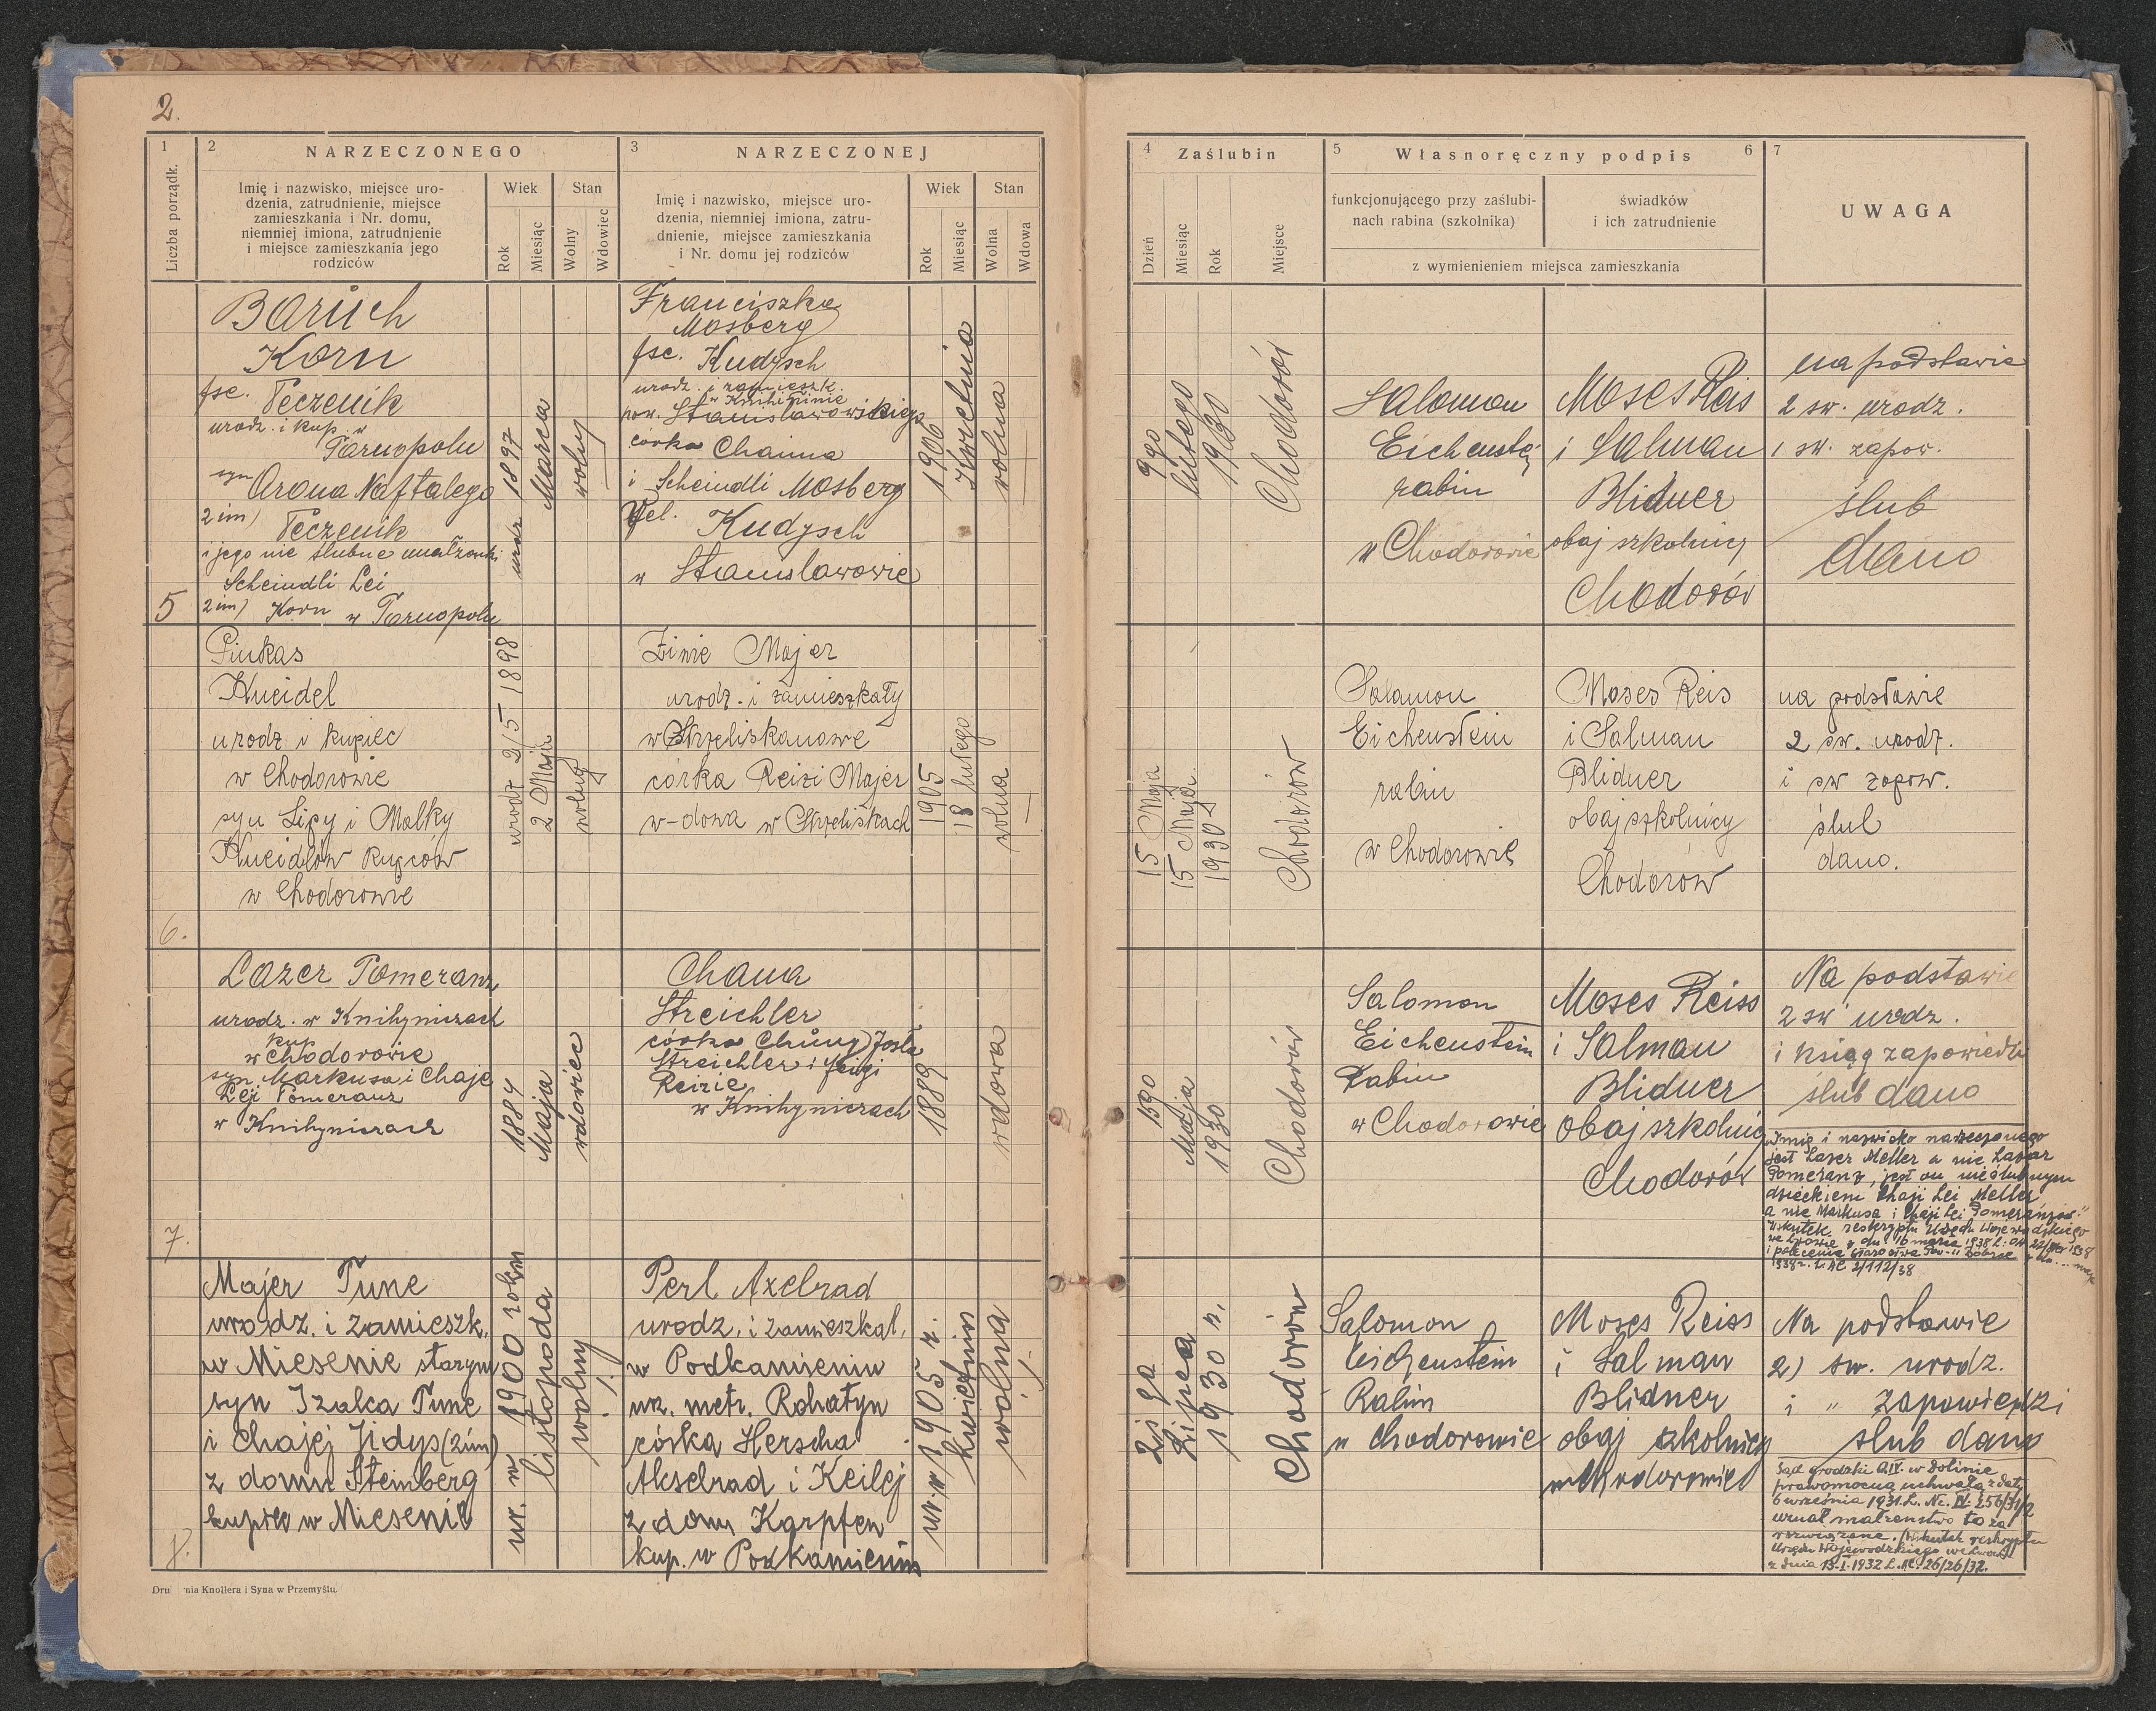 2.
1
2
NARZECZONEGO
3
NARZECZONEJ
Liczba porządk.
Imię i nazwisko, miejsce uro-
dzenia, zatrudnienie, miejsce
zamieszkania i Nr. domu,
niemniej imiona, zatrudnienie
i miejsce zamieszkania jego
rodziców
Wiek
Stan
Rok
Miesiąc
Wolny
Wdowiec
Imię i nazwisko, miejsce uro-
dzenia, niemniej imiona, zatru-
dnienie, miejsce zamieszkania
i Nr. domu jej rodziców
Wiek
Stan
Rok
Miesiąc
Wolna
Wdowa
4
Zaślubin
5
Własnoręczny podpis
6
7
Dzień
Miesiąc
Rok
Miejsce
funkcjonującego przy zaślubi-
nach rabina (szkolnika)
świadków
i ich zatrudnienie
z wymienieniem miejsca zamieszkania
UWAGA
5
Baruch
Korn
fsc. Teczenik
urodz. i kup. w
Tarnopolu
syn Arona Naftalego
2 im) Teczenik
i jego nie ślubne małżonki
Scheindli Lei
2 im) Korn w Tarnopolu
urodz 1897
Marca
wolny
Franciszka
Mosberg
fsc. Kudysch
urodz. i zamieszk.
w Knihininie
pow. Stanislawowskiego
córka Chaima
i Scheindli Mosberg
Vel. Kudysch
w Stanislawowie
1906
Kwietnia
wolna
9go
lutego
1930
Chodorów
Salomon
Eichenstein
rabin
w Chodorowie
Moses Reis
i Salman
Blidner
obaj szkolnicy
Chodorów
na podstawie
2 sw. urodz.
1 sw. zapow.
ślub
dano
6.
Pinkas
Kneidel
urodz i kupiec
w Chodorowie
syn Lipy i Malky
Kneidlów kupców
w Chodorowie
urodz 2/5 1898
2 Maja
wolny
Zinie Majer
urodz. i zamieszkały
w Strzeliskanowe
córka Reizi Majer
w-dowa w Strzeliskach
1905
18 lutego
wolna
15 Maja
15 Maja
1930
Chodorów
Salamon
Eichenstein
rabin
w Chodorowie
Moses Reis
i Salman
Blidner
obaj szkolnicy
Chodorow
na podstawie
2 sw. urodz.
i sw zapow.
ślub
dano.
7.
Lazer Pomeranz
urodz. w Knihyniczach
kup
w Chodorowie
syn Markusa i Chaje
Lej Pomeranz
w Knihyniczach
1884
Maja
wdowiec
Chana
Streichler
córka Chuny Josla
Streichler i feigi
Reizie
w Knihyniczach
1889
wdowa
15go
Maja
1930
Chodorów
Salomon
Eichenstein
Rabin
w Chodorowie
Moses Reiss
i Salman
Blidner
obaj szkolnicy
Chodorów
Na podstawie
2 sw urodz.
i ksiąg zapowiedzi
ślub dano
"Imię i nazwisko narzeczonego
jest Lazer Meller a nie Lazar
Pomeranz, jest on nieślubnym
dzieckiem Chaji Lei Meller
a nie Markusa i Chaji Lei Pomeranzów"
Wskutek reskryptu Urzędu Wojewódzkiego
we Lwowie z dn. 16 marca 1938
i polecenia Starostwa
1938 r. L. AC 2/112/38
8.
Majer Tune
urodz. i zamieszk.
w Miesenie starym
syn Izaka Tune
i Chajej Jidys (2 im)
z domu Steinberg
kupiec w Miesenie
ur. w 1900 rokm
listopada
wolny
Perl Axelrad
urodz. i zamieszkal.
w Podkamieniu
ur. metr. Rohatyn
córka Herscha
Akselrad i Keilej
z domu Karpfen
kup. w Podkamieniu
ur. w 1905 r.
kwietniu
wolna
2i ga
Lipca
1930 r.
Chodorów
Salomon
Eichenstein
Rabin
w Chodorowie
Moses Reiss
i Salman
Blidner
obaj szkolnicy
w Chodorowie
Na podstawie
2) sw. urodz.
i " zapowiedzi
ślub dano
Sąd grodzki O.IV. w Dolinie
prawomocną uchwałą z daty
6 września 1931. L. Nc. IV. 256/31/2
uznał małzenstwo to za
rozwiązane. (Wskutek reskryptu
Urzędu Wojewodzkiego we Lwowie
z dnia 13.I.1932 L. AC. 26/26/32.
nia Knollera i Syna w Przemyślu.